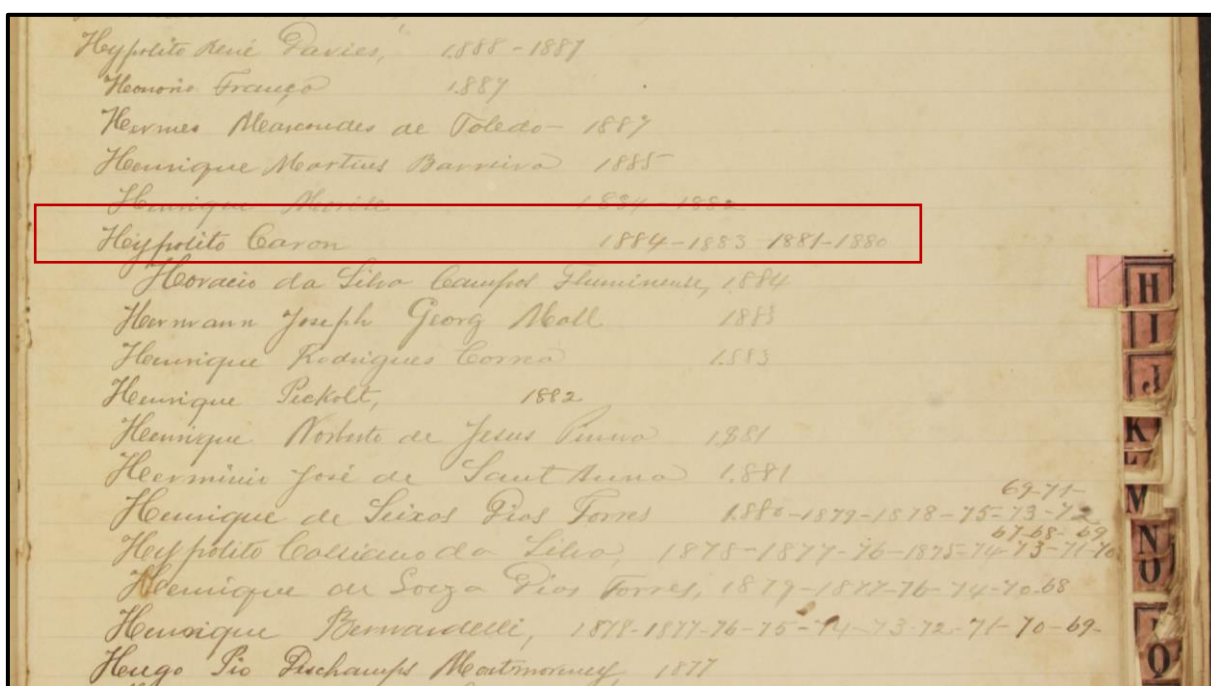 Hypolito René Davies, 1888-1887
Honorio França 1887
Hermes Marcondes de Toledo- 1887
Henrique Martins Barreira 1885
Henrique 1884-1882
Hyppolito Caron 1884-1883-1881-1880
Horacio da Silva Campos Fluminense, 1884
Hermann Joseph Georg Moll 1883
Henrique Rodrigues Correa 1883
Henrique Peckolt, 1882
Henrique Norberto de Jesus 1881
Herminio José de Sant'Anna 1881
69-71-
Henrique de Seixos Dias Torres 1880-1879-1878-75-73-72
67-68-69
Hyppolito Cassiano da Silva, 1878-1877-76-1875-74-73-71-70
Henrique de Souza Dias Torres, 1879-1877-76-74-70-68
Henrique Bernardelli, 1878-1877-76-75-74-73-72-71-70-69-
Hugo Pio Deschamps Montmorency, 1877
H
I
J
K
L
M
N
O
Q